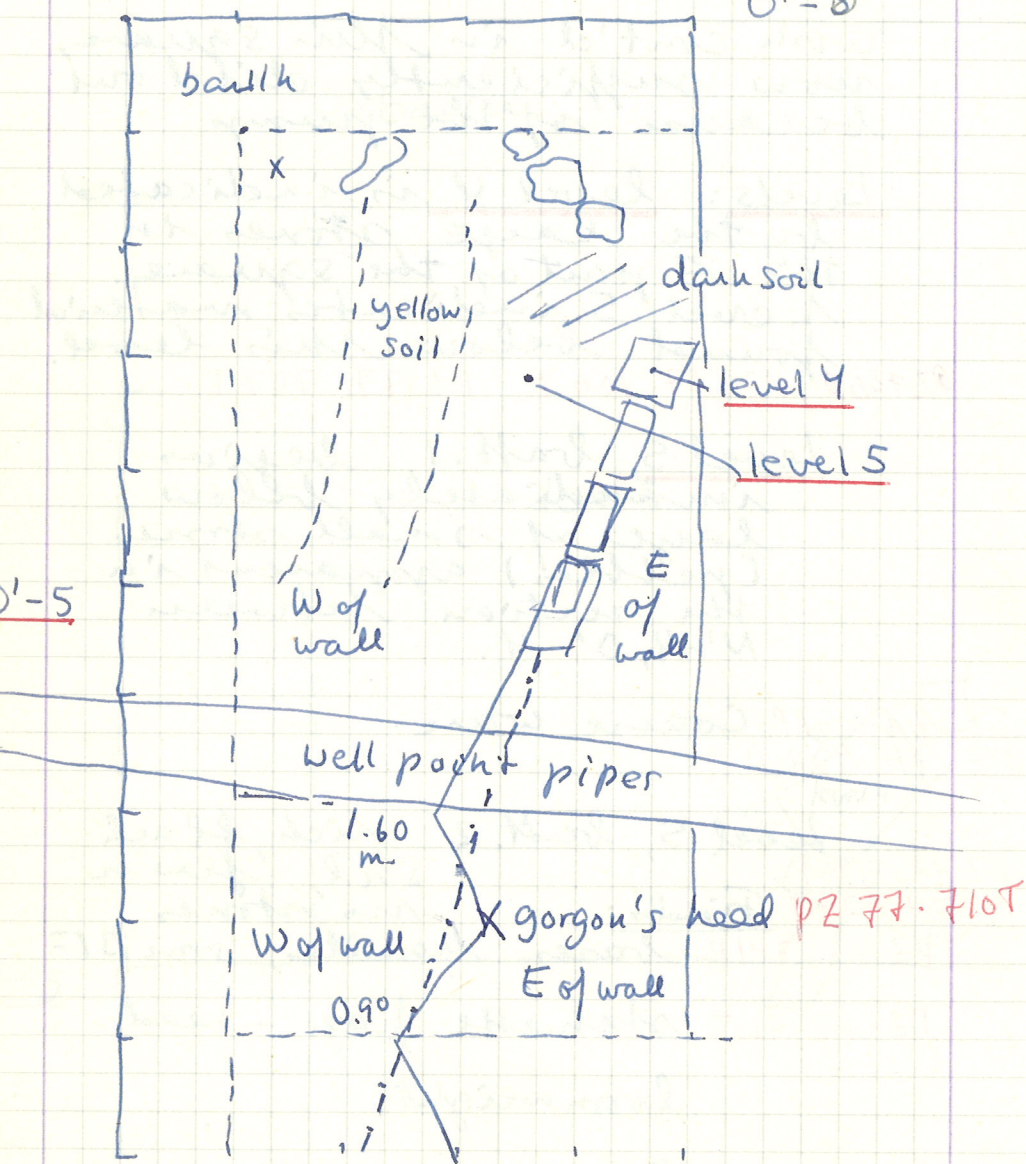 O'-6
baulk
x
dark soil
yellow
soil
level 4
level 5
E
of
wall
O'-5
W of
wall
well point pipes
1.60
m
X gorgon's head PZ 77.710T
W of wall
E of wall
0.90